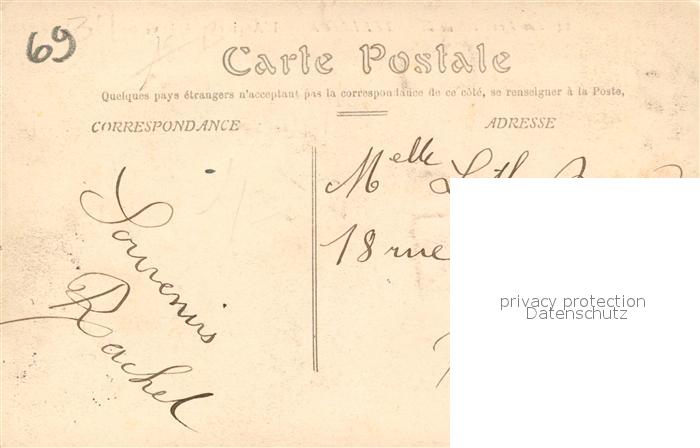 69
Carte Postale
Quelques pays étrangers n'acceptant pas la correspondance de ce côté, se renseigner à la Poste,
CORRESPONDANCE
ADRESSE
Melle
18 rue
Souvenirs
Rachel
privacy protection
Datenschutz